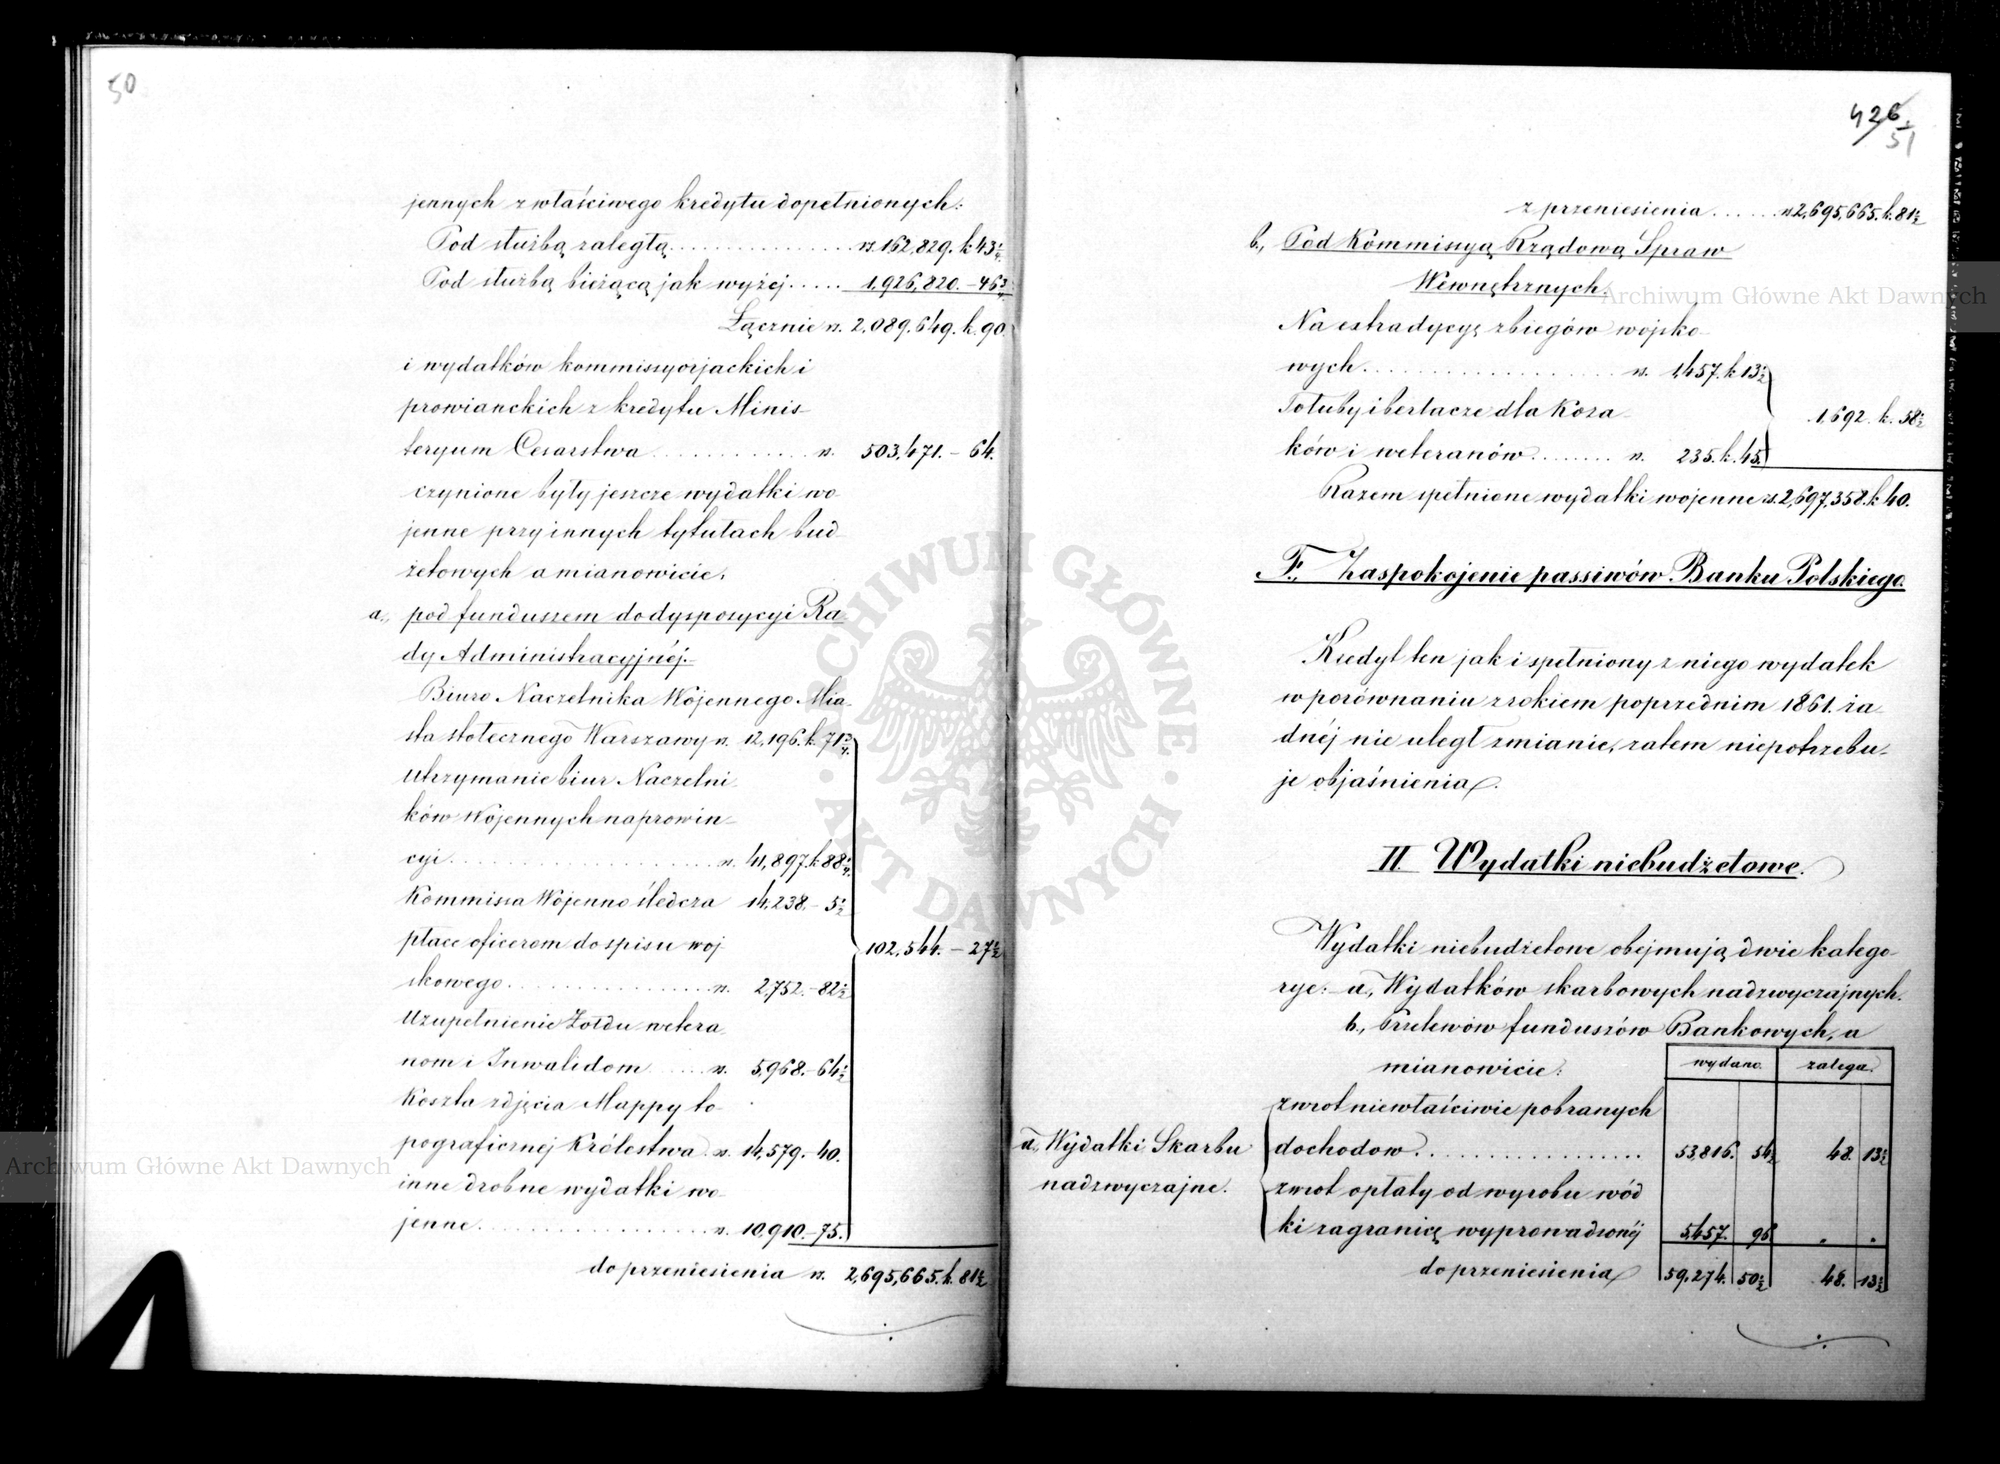 50
jennych z właściwego kredytu dopełnionych:
Pod służbą zaległą . . . . . . . . . . rs. 162,829. k. 43 1/4
Pod służbą bieżącą jak wyżej . . . . . 1,926,820. – 46 3/4
Łącznie rs. 2,089,649. k. 90.
i wydatków kommissyorjackich i
prowianckich z kredytu Minis-
teryum Cesarstwa . . . . . . . . . . rs. 503,471. – 64.
czynione były jeszcze wydatki wo-
jenne przy innych tytułach bud-
żetowych a mianowicie:
a., pod funduszem do dyspozycyi Ra-
dy Administracyjnéj.
Biuro Naczelnika Wojennego Mia-
sta stołecznego Warszawy rs. 12,196. k. 71 3/4
Utrzymanie biur Naczelni-
ków Wojennych na prowin-
cyi . . . . . . . . . . rs. 41,897. k. 88 1/4
Kommissa Wojenno śledcza 14,238. – 5 1/2
płace oficerom do spisu woj-
102,544. – 27 1/2
skowego . . . . . . . . . . rs. 2,752. – 82 1/2
Uzupełnienie Żołdu wetera-
nom i Inwalidom . . . . . rs. 5,968. – 64 1/2
Koszta zdjęcia Mappy to-
pograficznej Królestwa . rs. 14,579. – 40.
inne drobne wydatki wo-
jenne . . . . . . . . . . rs. 10,910. – 75.
do przeniesienia rs. 2,695,665. k. 81 1/2
426
51
z przeniesienia . . . . . . rs. 2,695,665. k. 81 1/2
b., Pod Kommissyą Rządową Spraw
Wewnętrznych.
Na extradycyę zbiegów wojsko-
wych . . . . . . . . . . rs. 1,457. k. 13 1/2
Tołuby i berlacze dla Koza-
1,692. k. 58 1/2
ków i weteranów . . . . . . . rs. 235. k. 45.
Razem spełnione wydatki wojenne rs. 2,697,358. k. 40.
F., Zaspokojenie passiwów Banku Polskiego.
Kredyt ten jak i spełniony z niego wydatek
w porównaniu z rokiem poprzednim 1861. ża-
dnéj nie uległ zmianie, zatem niepotrzebu-
je objaśnienia.
II. Wydatki niebudżetowe.
Wydatki niebudżetowe obejmują dwie katego-
rye: a., Wydatków skarbowych nadzwyczajnych.
b., Przelewów funduszów Bankowych, a
mianowicie: wydano. zalega.
zwrot niewłaściwie pobranych
a., Wydatki Skarbu dochodow . . . . . . . . . . 53,816. 54 1/2 48. 13 1/2
nadzwyczajne. zwrot opłaty od wyrobu wód
ki zagranicę wyprowadzonéj 5,457. 96. . .
do przeniesienia 59,274. 50 1/2 48. 13 1/2
ARCHIWUM GŁÓWNE AKT DAWNYCH
Archiwum Główne Akt Dawnych
Archiwum Główne Akt Dawnych